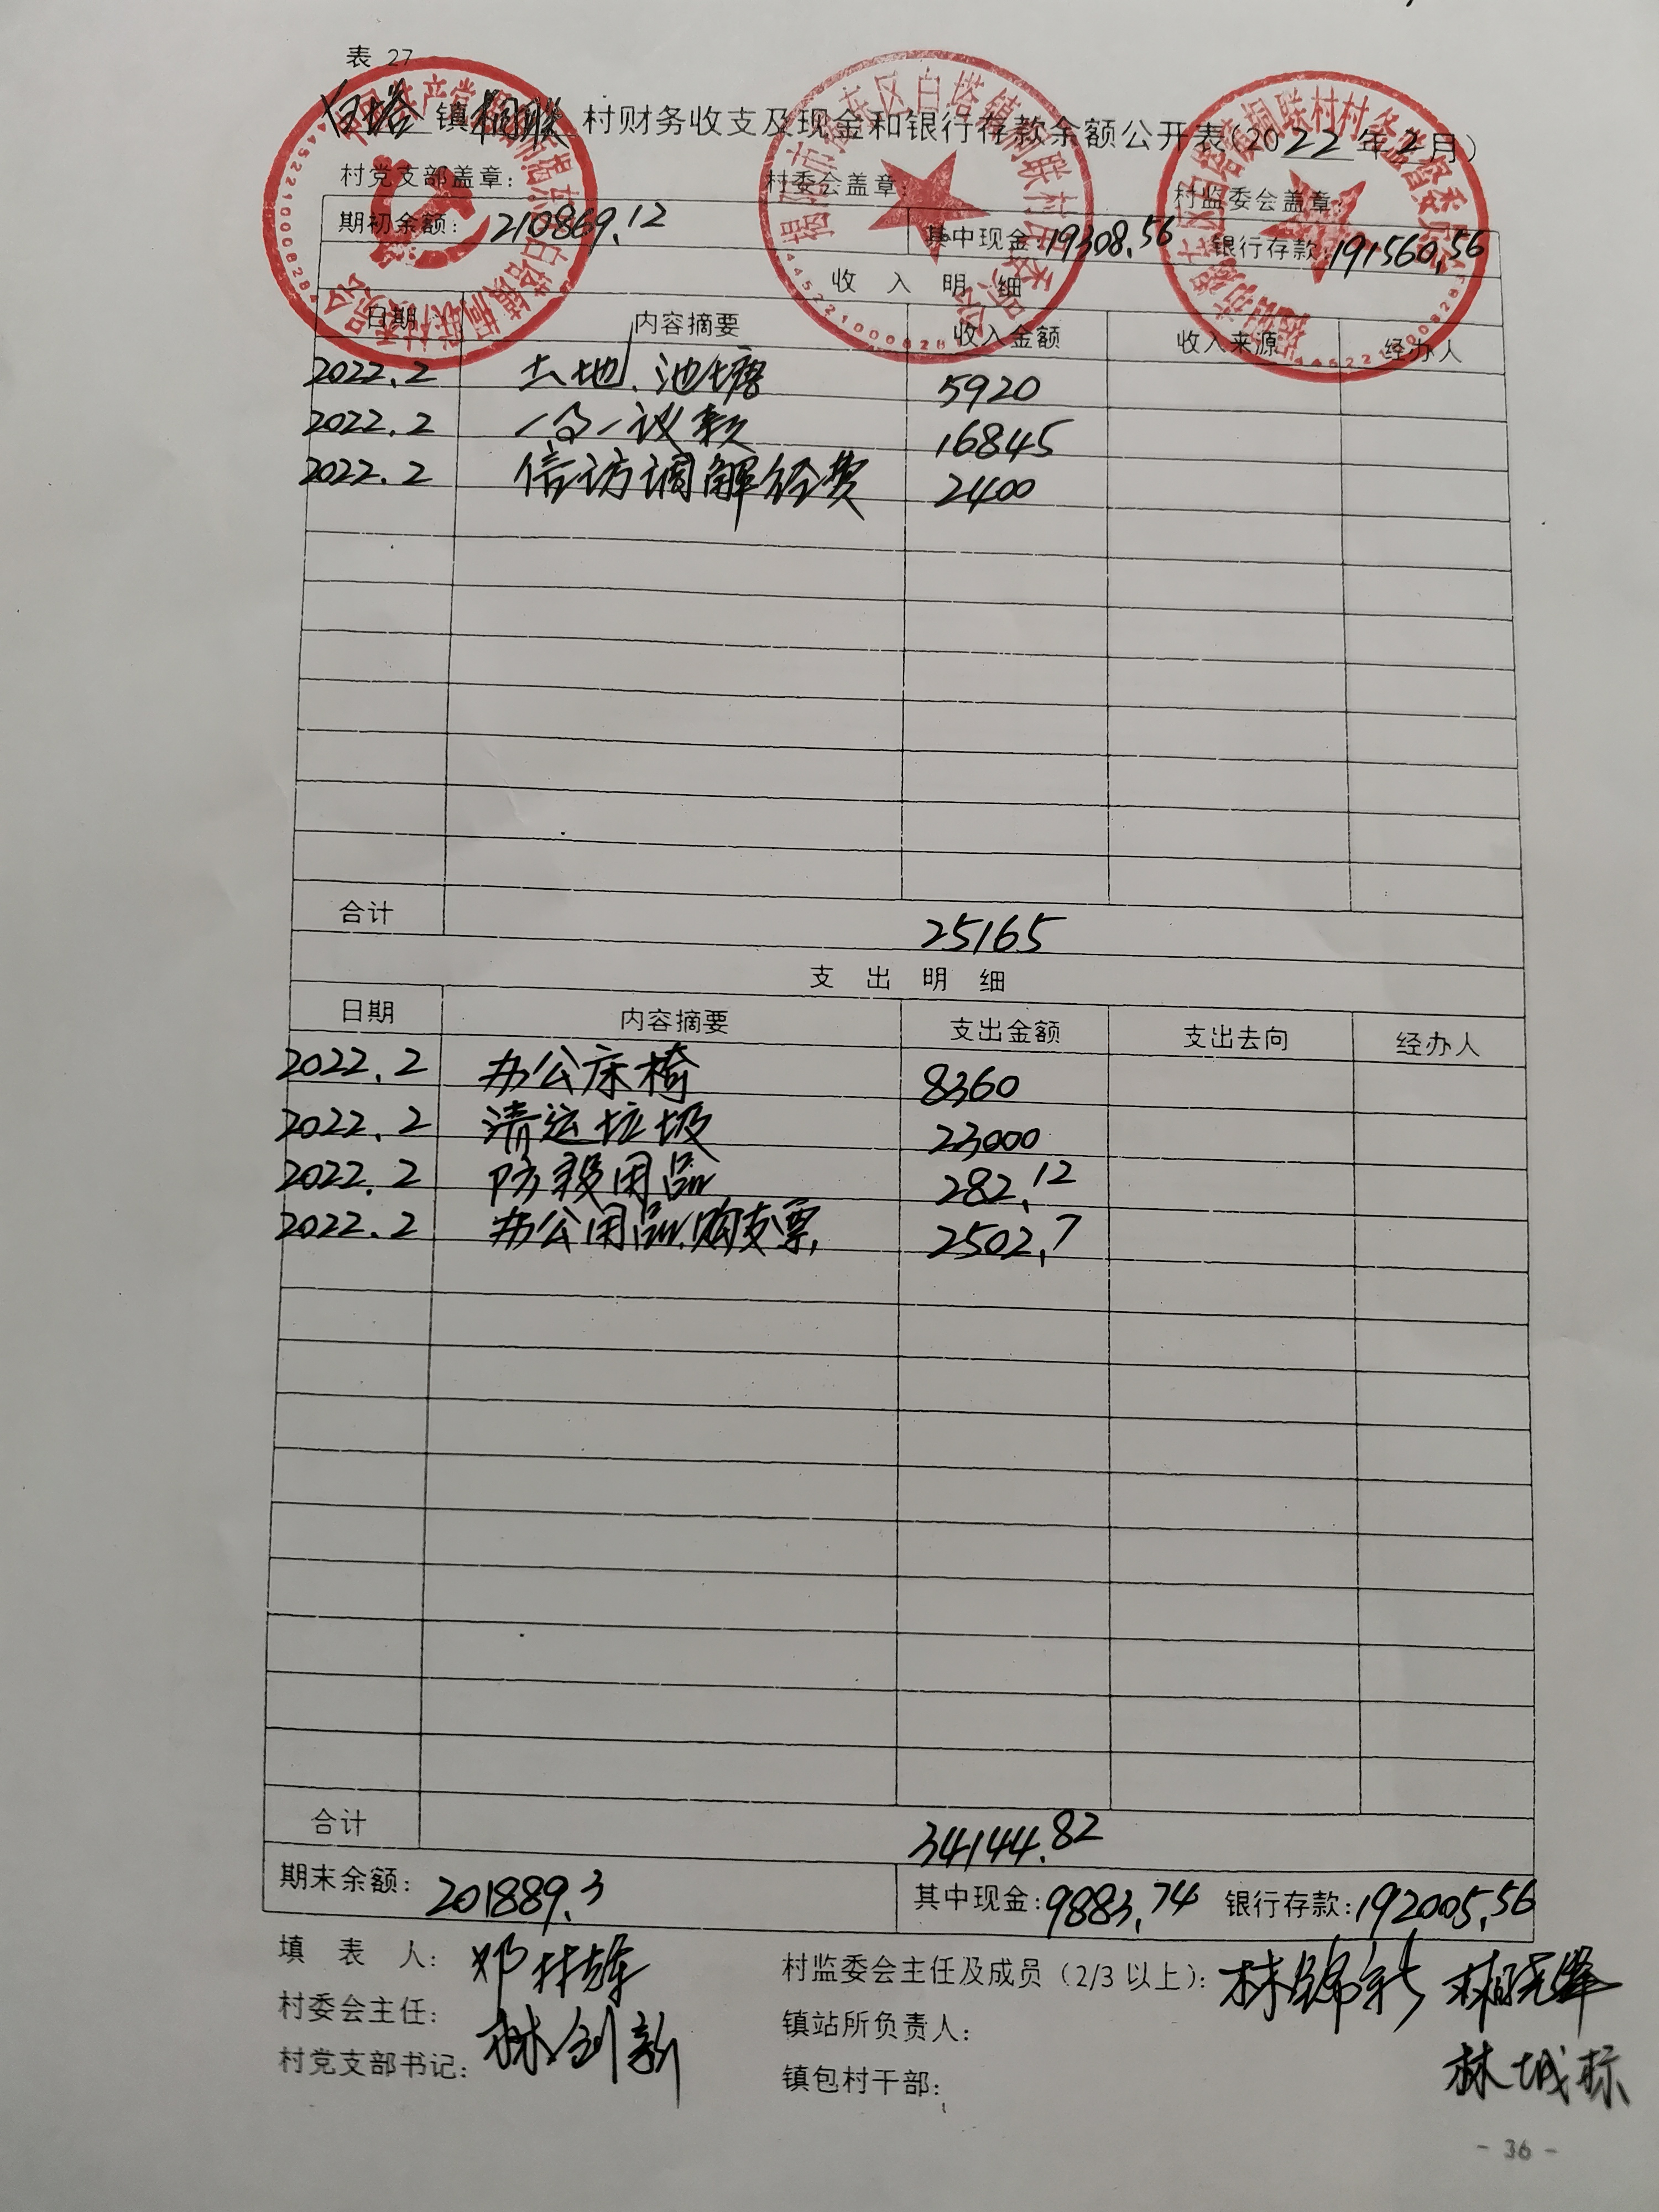 表 27
白塔 镇 桐联 村财务收支及现金和银行存款余额公开表(2022年2月)
村党支部盖章: 村委会盖章: 村监委会盖章:
期初余额: 210869.12 其中现金:19308.56 银行存款:191560.56
收 入 明 细
日期 内容摘要 收入金额 收入来源 经办人
2022.2 土地、池塘 5920
2022.2 一事一议款 16845
2022.2 信访调解经费 2400
合计 25165
支 出 明 细
日期 内容摘要 支出金额 支出去向 经办人
2022.2 办公床椅 8360
2022.2 清运垃圾 23000
2022.2 防疫用品 282.12
2022.2 办公用品.购支票 2502.7
合计 34144.82
期末余额: 201889.3 其中现金:9883.74 银行存款:192005.56
填 表 人: 村监委会主任及成员(2/3以上): 林锦新
村委会主任: 镇站所负责人:
村党支部书记: 林创新 镇包村干部: 林城标
- 36 -